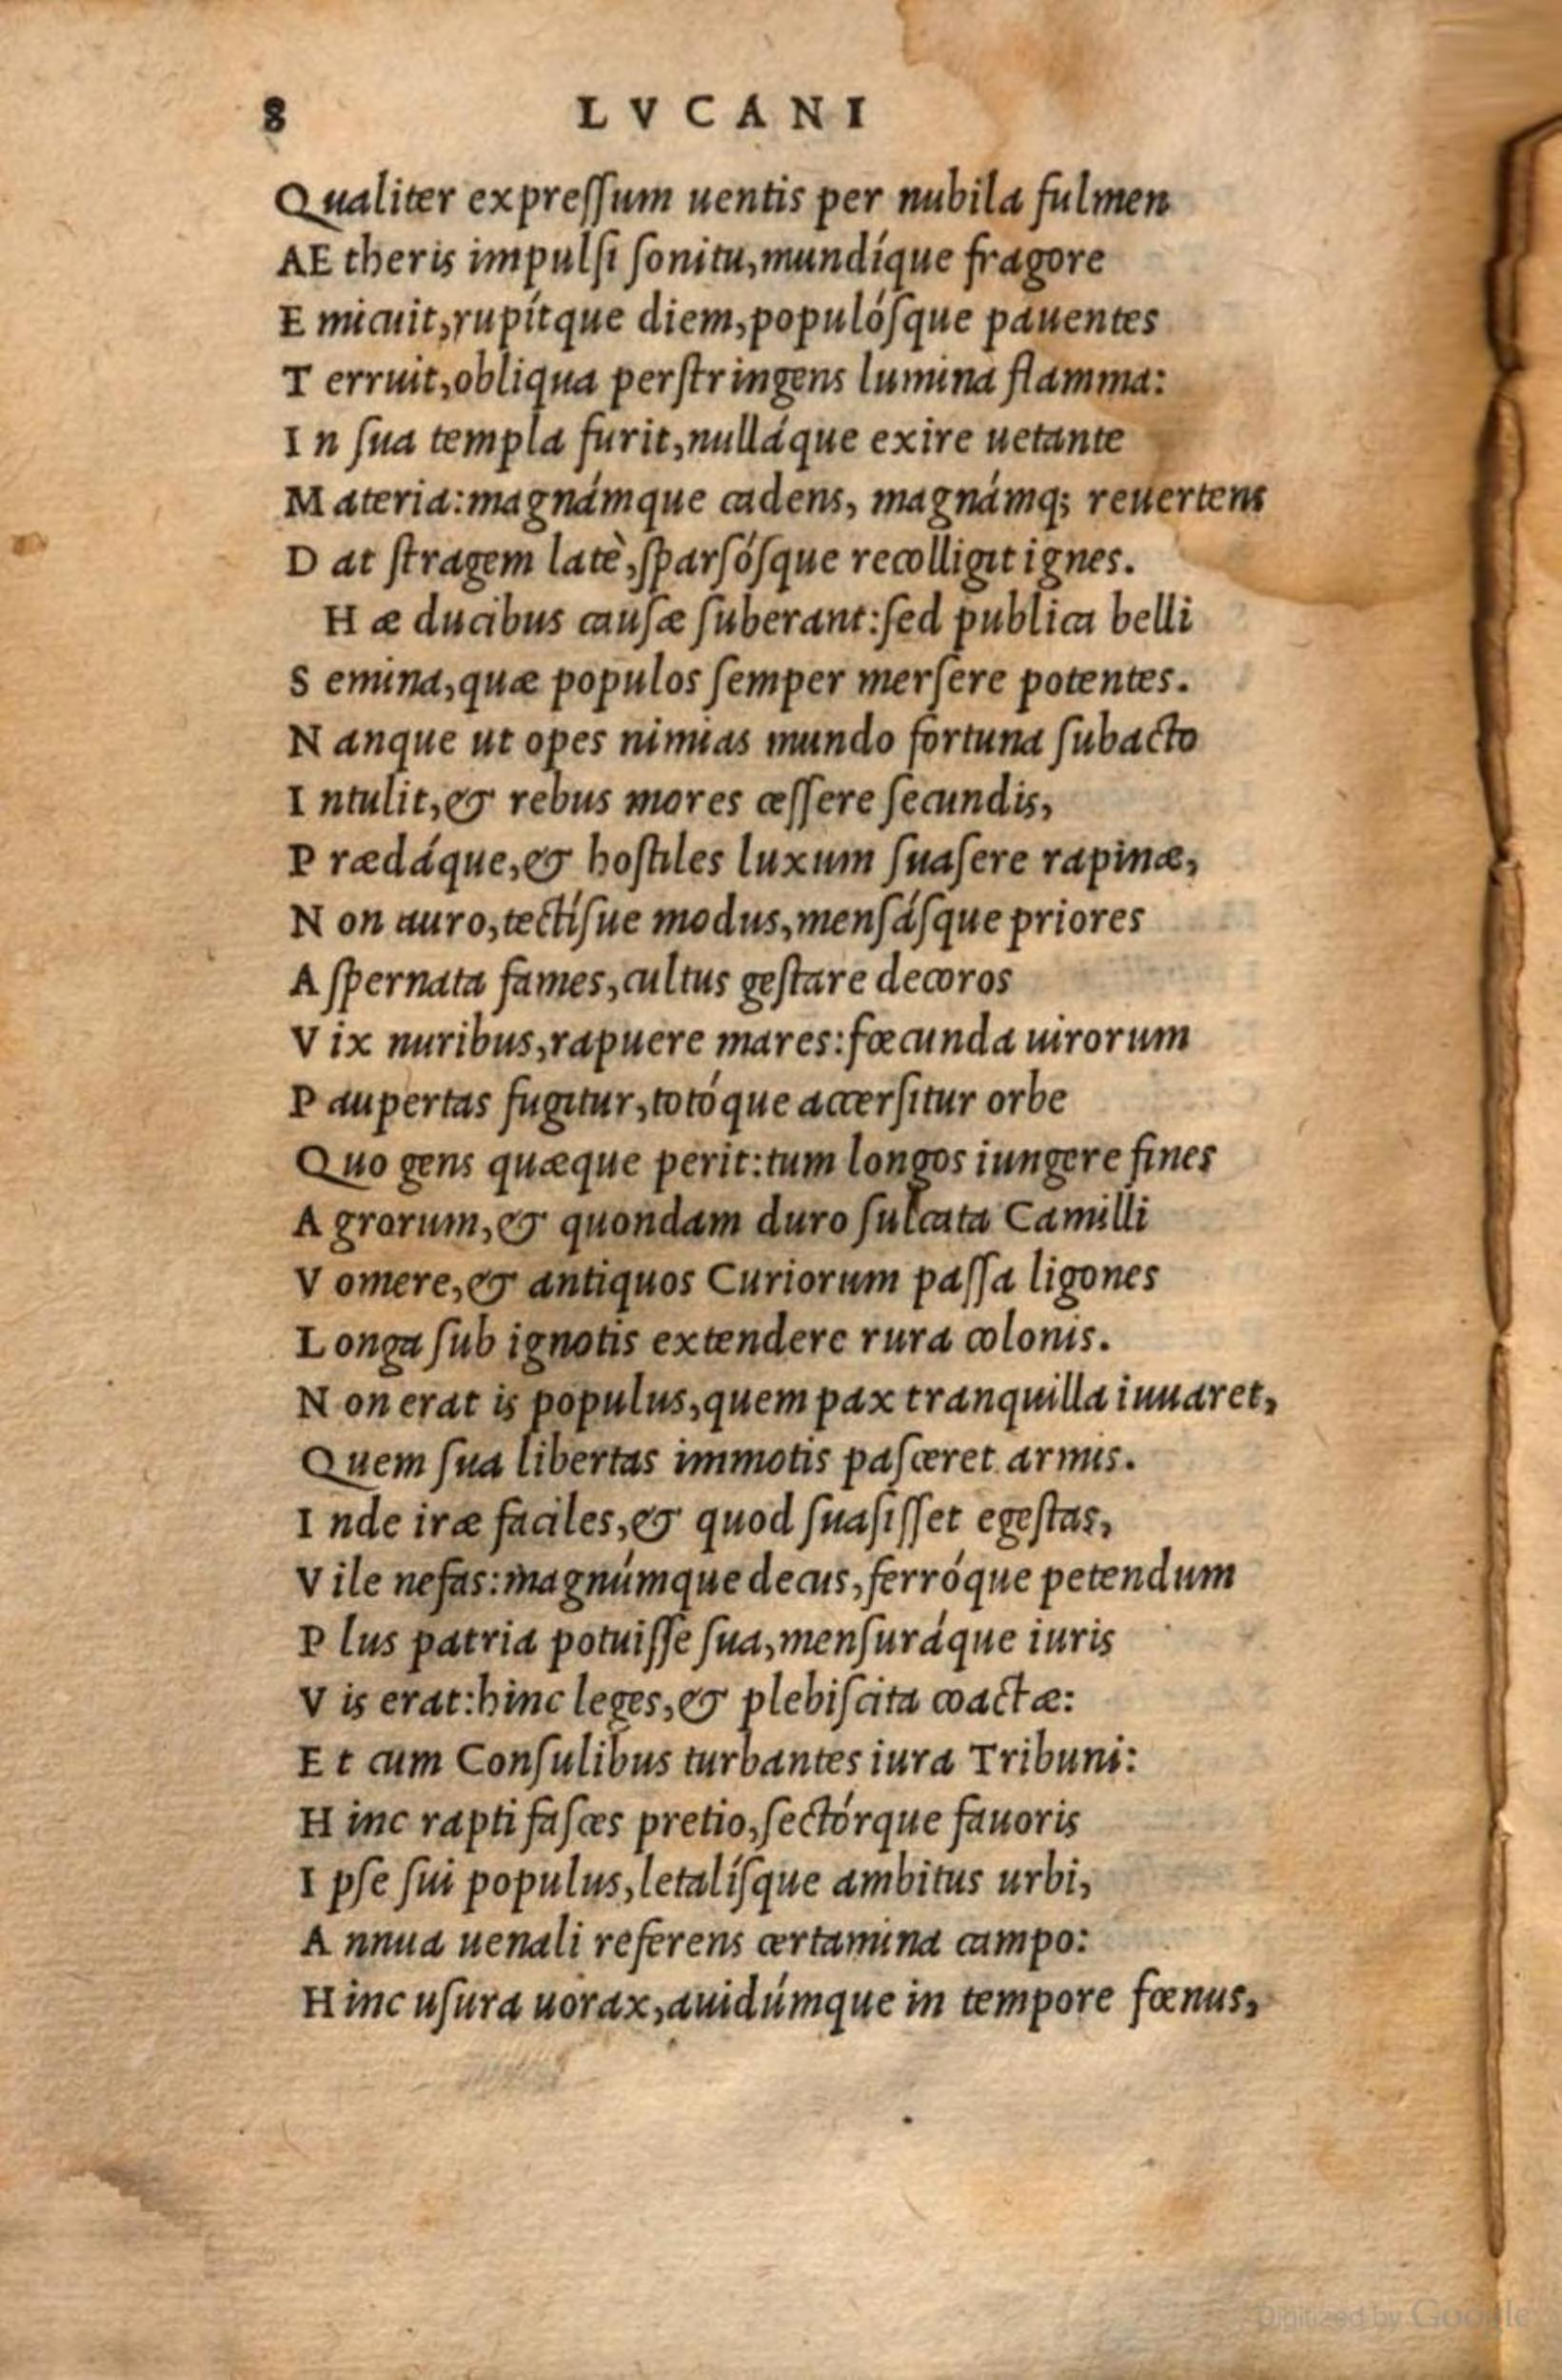 8 LVCANI
Qualiter expreſſum uentis per nubila fulmen
AE theris impulſi ſonitu, mundíque fragore
E micuit, rupítque diem, populóſque pauentes
T erruit, obliqua perſtringens lumina flamma:
I n ſua templa furit, nulláque exire uetante
M ateria: magnámque cadens, magnámq; reuertens
D at ſtragem latè, ſparſóſque recolligit ignes.
H æ ducibus cauſæ ſuberant: ſed publica belli
S emina, quæ populos ſemper merſere potentes.
N anque ut opes nimias mundo fortuna ſubacto
I ntulit, & rebus mores ceſſere ſecundis,
P rædáque, & hoſtiles luxum ſuaſere rapinæ,
N on auro, tectíſue modus, menſáſque priores
A ſpernata fames, cultus geſtare decoros
V ix nuribus, rapuere mares: fœcunda uirorum
P aupertas fugitur, totóque accerſitur orbe
Quo gens quæque perit: tum longos iungere fines
A grorum, & quondam duro ſulcata Camilli
V omere, & antiquos Curiorum paſſa ligones
L onga ſub ignotis extendere rura colonis.
N on erat is populus, quem pax tranquilla iuuaret,
Quem ſua libertas immotis paſceret armis.
I nde iræ faciles, & quod ſuaſiſſet egeſtas,
V ile nefas: magnúmque decus, ferróque petendum
P lus patria potuiſſe ſua, menſuráque iuris
V is erat: hinc leges, & plebiſcita coactæ:
E t cum Conſulibus turbantes iura Tribuni:
H inc rapti faſces pretio, ſectórque fauoris
I pſe ſui populus, letalíſque ambitus urbi,
A nnua uenali referens certamina campo:
H inc uſura uorax, auidúmque in tempore fœnus,
Digitized by Google